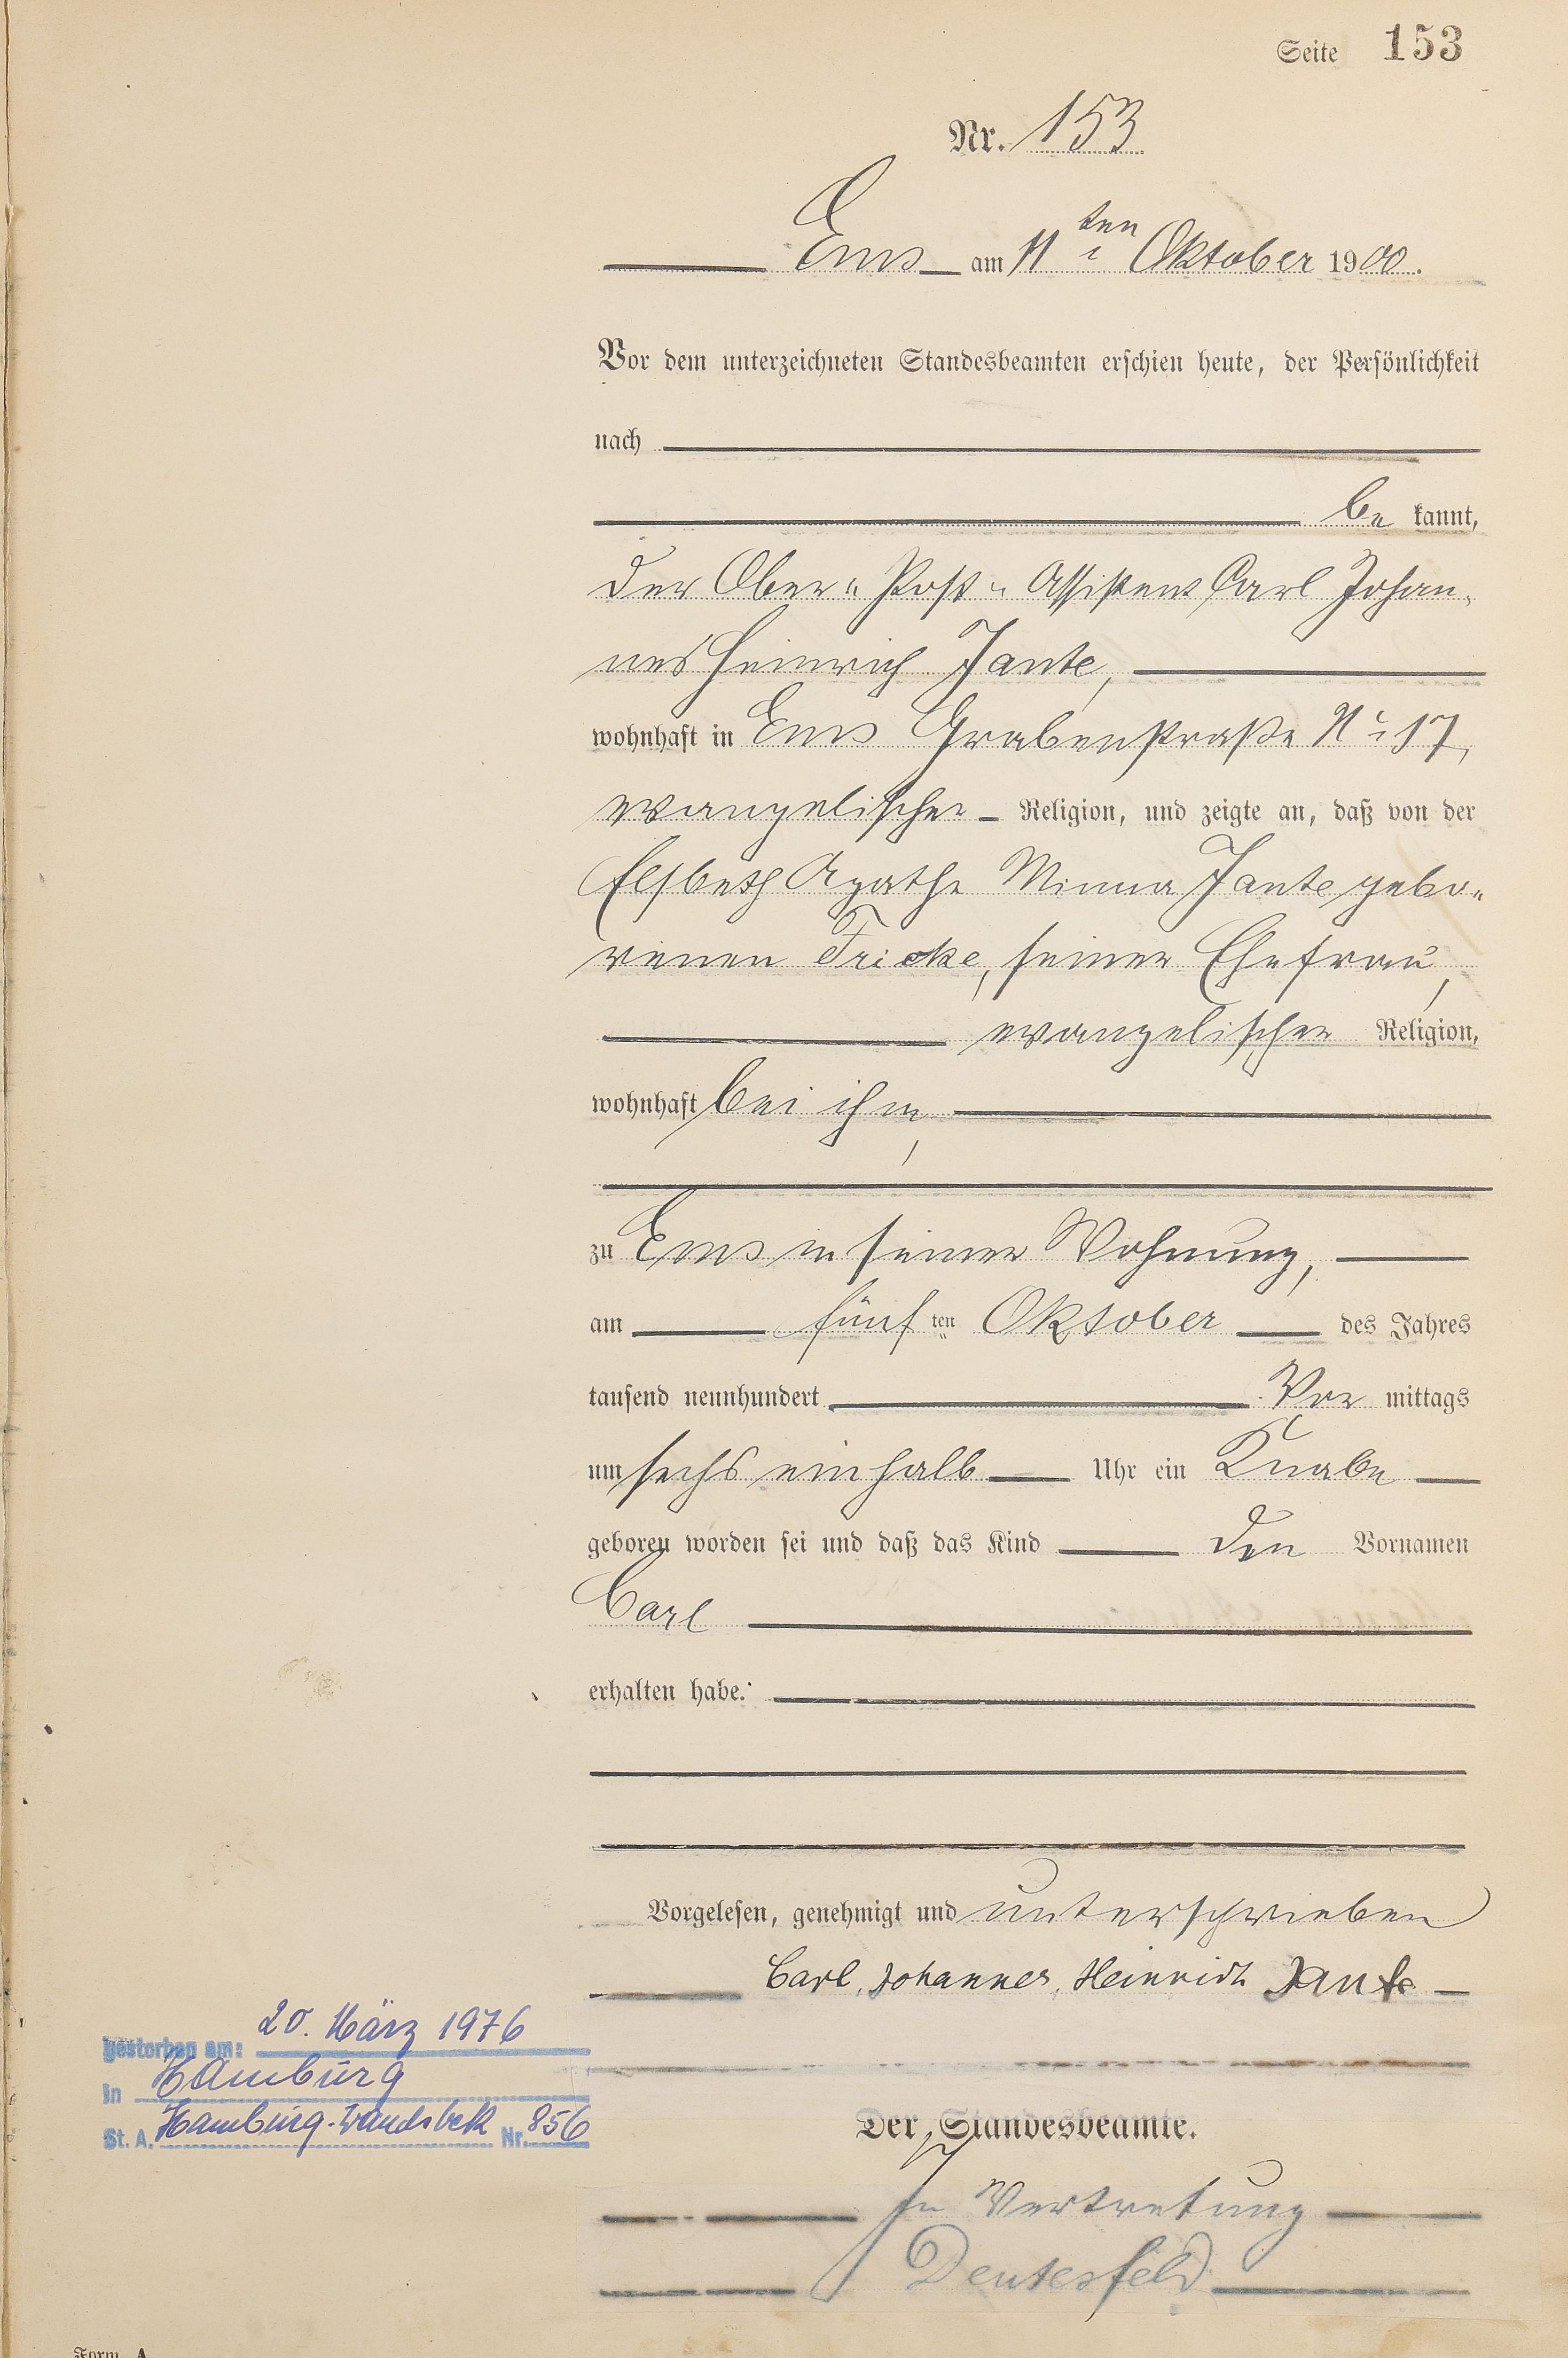 Seite 153
Nr. 153
Ems am 11ten Oktober 1900.
Vor dem unterzeichneten Standesbeamten erschien heute, der Persönlichkeit
nach
be kannt,
der Ober-Post-Assistent Carl Johan-
nes Heinrich Jante,
wohnhaft in Ems Grabenstraße No 17,
evangelischer Religion, und zeigte an, daß von der
Elsbeth Agathe Minna Jante gebo-
renen Fricke, seiner Ehefrau,
evangelischer Religion,
wohnhaft bei ihm,
zu Ems in seiner Wohnung,
am fünf ten Oktober des Jahres
tausend neunhundert Vor mittags
um sechs einhalb Uhr ein Knabe
geboren worden sei und daß das Kind den Vornamen
Carl
erhalten habe.
Vorgelesen, genehmigt und unterschrieben
Carl Johannes Heinrich Jante
gestorben am: 20. März 1976
in Hamburg
St. A. Hamburg-Wandsbek Nr. 856
Der Standesbeamte.
In Vertretung
Deutesfeld
Form. A